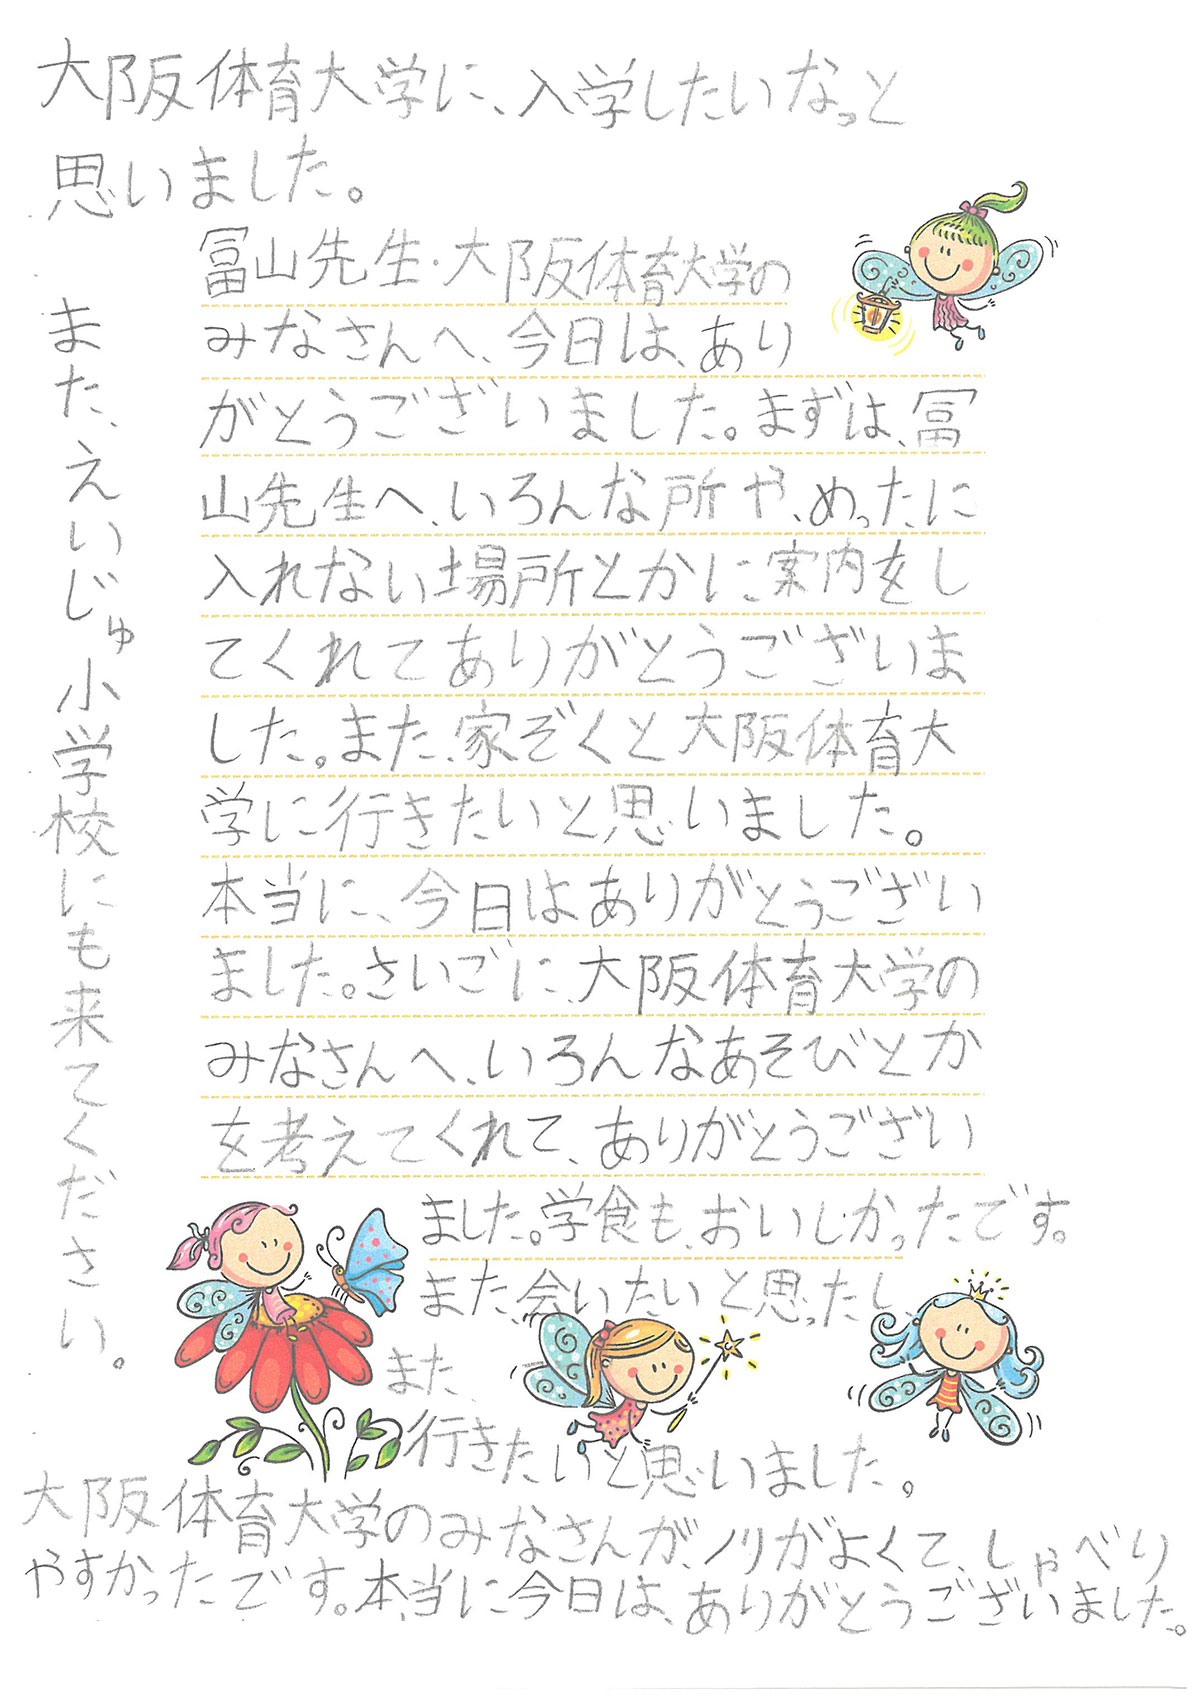 大阪体育大学に、入学したいなっと
思いました。
冨山先生・大阪体育大学の
みなさんへ、今日は、あり
がとうございました。まずは、冨
山先生へ、いろんな所や、めったに
入れない場所とかに案内をし
てくれてありがとうございま
した。また、家ぞくと大阪体育大
学に行きたいと思いました。
本当に、今日はありがとうござい
ました。さいごに、大阪体育大学の
みなさんへ、いろんなあそびとか
を考えてくれて、ありがとうござい
ました。学食も、おいしかったです。
また、会いたいと思ったし、
また、
行きたいと思いました。
大阪体育大学のみなさんが、ノリがよくて、しゃべり
やすかったです。本当に今日は、ありがとうございました。
また、えいじゅ小学校にも来てください。